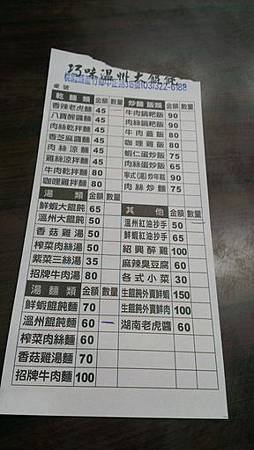 巧味溫州大餛飩
(03)322-6188
桌號
乾麵類 金額 數量
香辣老虎麵 45
八寶醡醬麵 45
肉絲乾拌麵 45
香芝麻醬麵 45
肉絲涼麵 45
雞絲涼拌麵 45
牛肉乾拌麵 80
咖哩雞拌麵 80
湯類 金額 數量
鮮蝦大餛飩 65
溫州大餛飩 50
香菇雞湯 50
榨菜肉絲湯 50
紫菜三絲湯 35
招牌牛肉湯 80
湯麵類 金額 數量
鮮蝦餛飩麵 70
溫州餛飩麵 60
榨菜肉絲麵 60
香菇雞湯麵 70
招牌牛肉麵 100
炒麵飯類 金額 數量
牛肉鍋粑飯 90
肉絲鍋粑飯 90
牛肉燴飯 80
咖哩雞飯 80
蝦仁蛋炒飯 65
肉絲蛋炒飯 65
牛肉炒麵 90
肉絲炒麵 75
其他 金額 數量
溫州紅油抄手 50
鮮蝦紅油抄手 65
紹興醉雞 100
麻辣臭豆腐 60
各式小菜 30
生餛飩外賣鮮蝦 150
生餛飩外賣鮮肉 100
湖南老虎醬 60